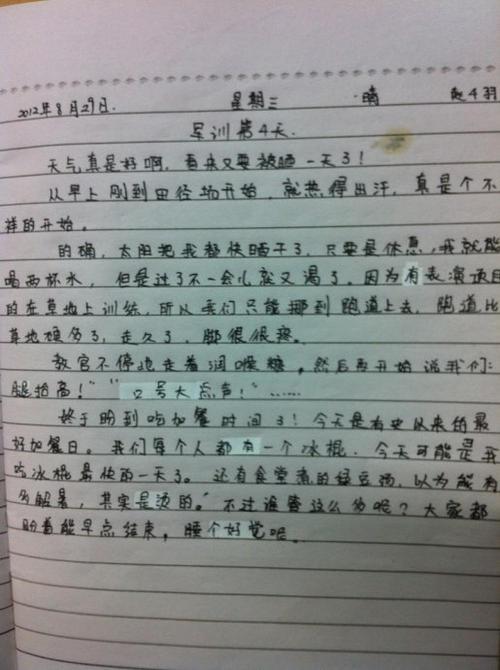 2012年8月29日. 星期三 晴 赵4羽
军训第4天.
天气真是好啊, 看来又要被晒一天了!
从早上刚到田径场开始, 就热得出汗, 真是个不
祥的开始。
的确, 太阳把我都快晒干了, 只要是休息, 我就能
喝两杯水, 但是过了不一会儿就又渴了。因为有表演项目
的在草地上训练, 所以我们只能挪到跑道上去, 跑道比
草地硬多了, 走久了, 脚很很疼。
教官不停地走着润喉糖, 然后再开始说我们:
腿抬高!" "口号大点声!"……
终于盼到吃加餐时间了! 今天是有史以来的最
好加餐日。我们每个人都有一个冰棍, 今天可能是我
吃冰棍最快的一天了。还有食堂煮的绿豆汤, 以为能有
多解暑, 其实是烫的。不过谁管这么多呢? 大家都
盼着能早点结束, 睡个好觉呢。